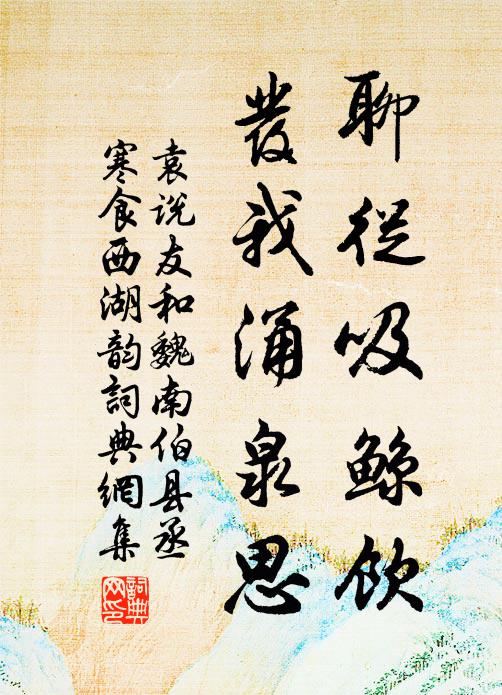 聊從吸鲸飲
發我涌泉思
袁说友和魏南伯县丞
寒食西湖韵詞典網集
詞典網印